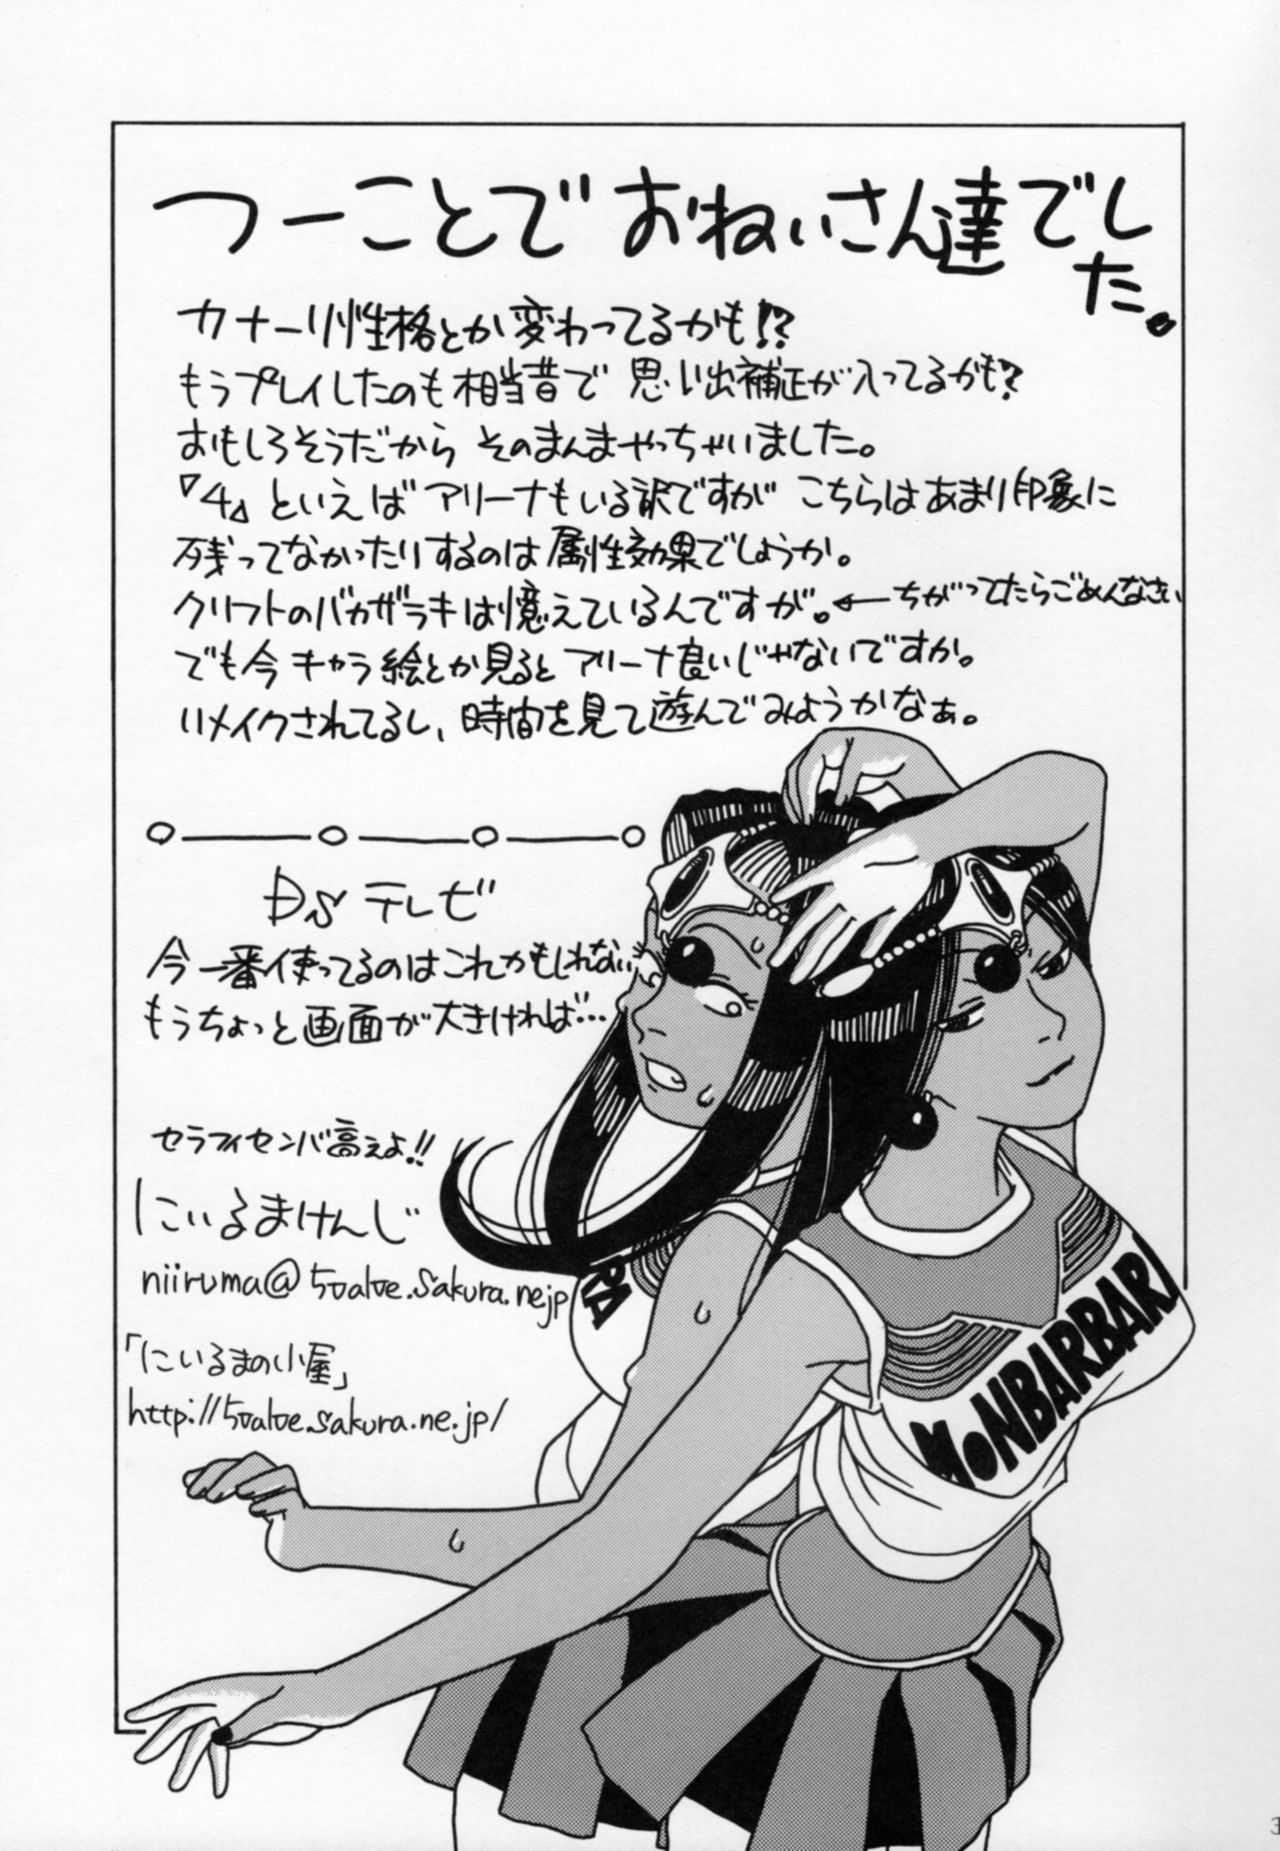 つーことでおねいさん達でした。
カナーリ性格とか変わってるかも!?
もうプレイしたのも相当昔で思い出補正が入ってるかも?
おもしろそうだから そのまんまやっちゃいました。
『4』といえばアリーナもいる訳ですが こちらはあまり印象に
残ってなかったりするのは属性効果でしょうか。
クリフトのバカザラキは憶えているんですが。←ちがってたらごめんなさい
でも今キャラ絵とか見るとアリーナ良いじゃないですか。
リメイクされてるし、時間を見て遊んでみようかなぁ。
DSテレビ
今一番使ってるのはこれかもしれない
もうちょっと画面が大きければ…
セラフィセンバ高えよ!!
にいるまけんじ
niiruma@5valve.sakura.ne.jp
「にいるまの小屋」
http://5valve.sakura.ne.jp/
RA
MONBARBARA
3